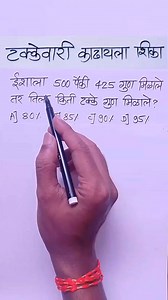 टक्केवारी काढायला शिका
ईशाला 500 पैकी 425 गुण मिळाले
तर तिला किती टक्के गुण मिळाले?
A] 80% B] 85% C] 90% D] 95%